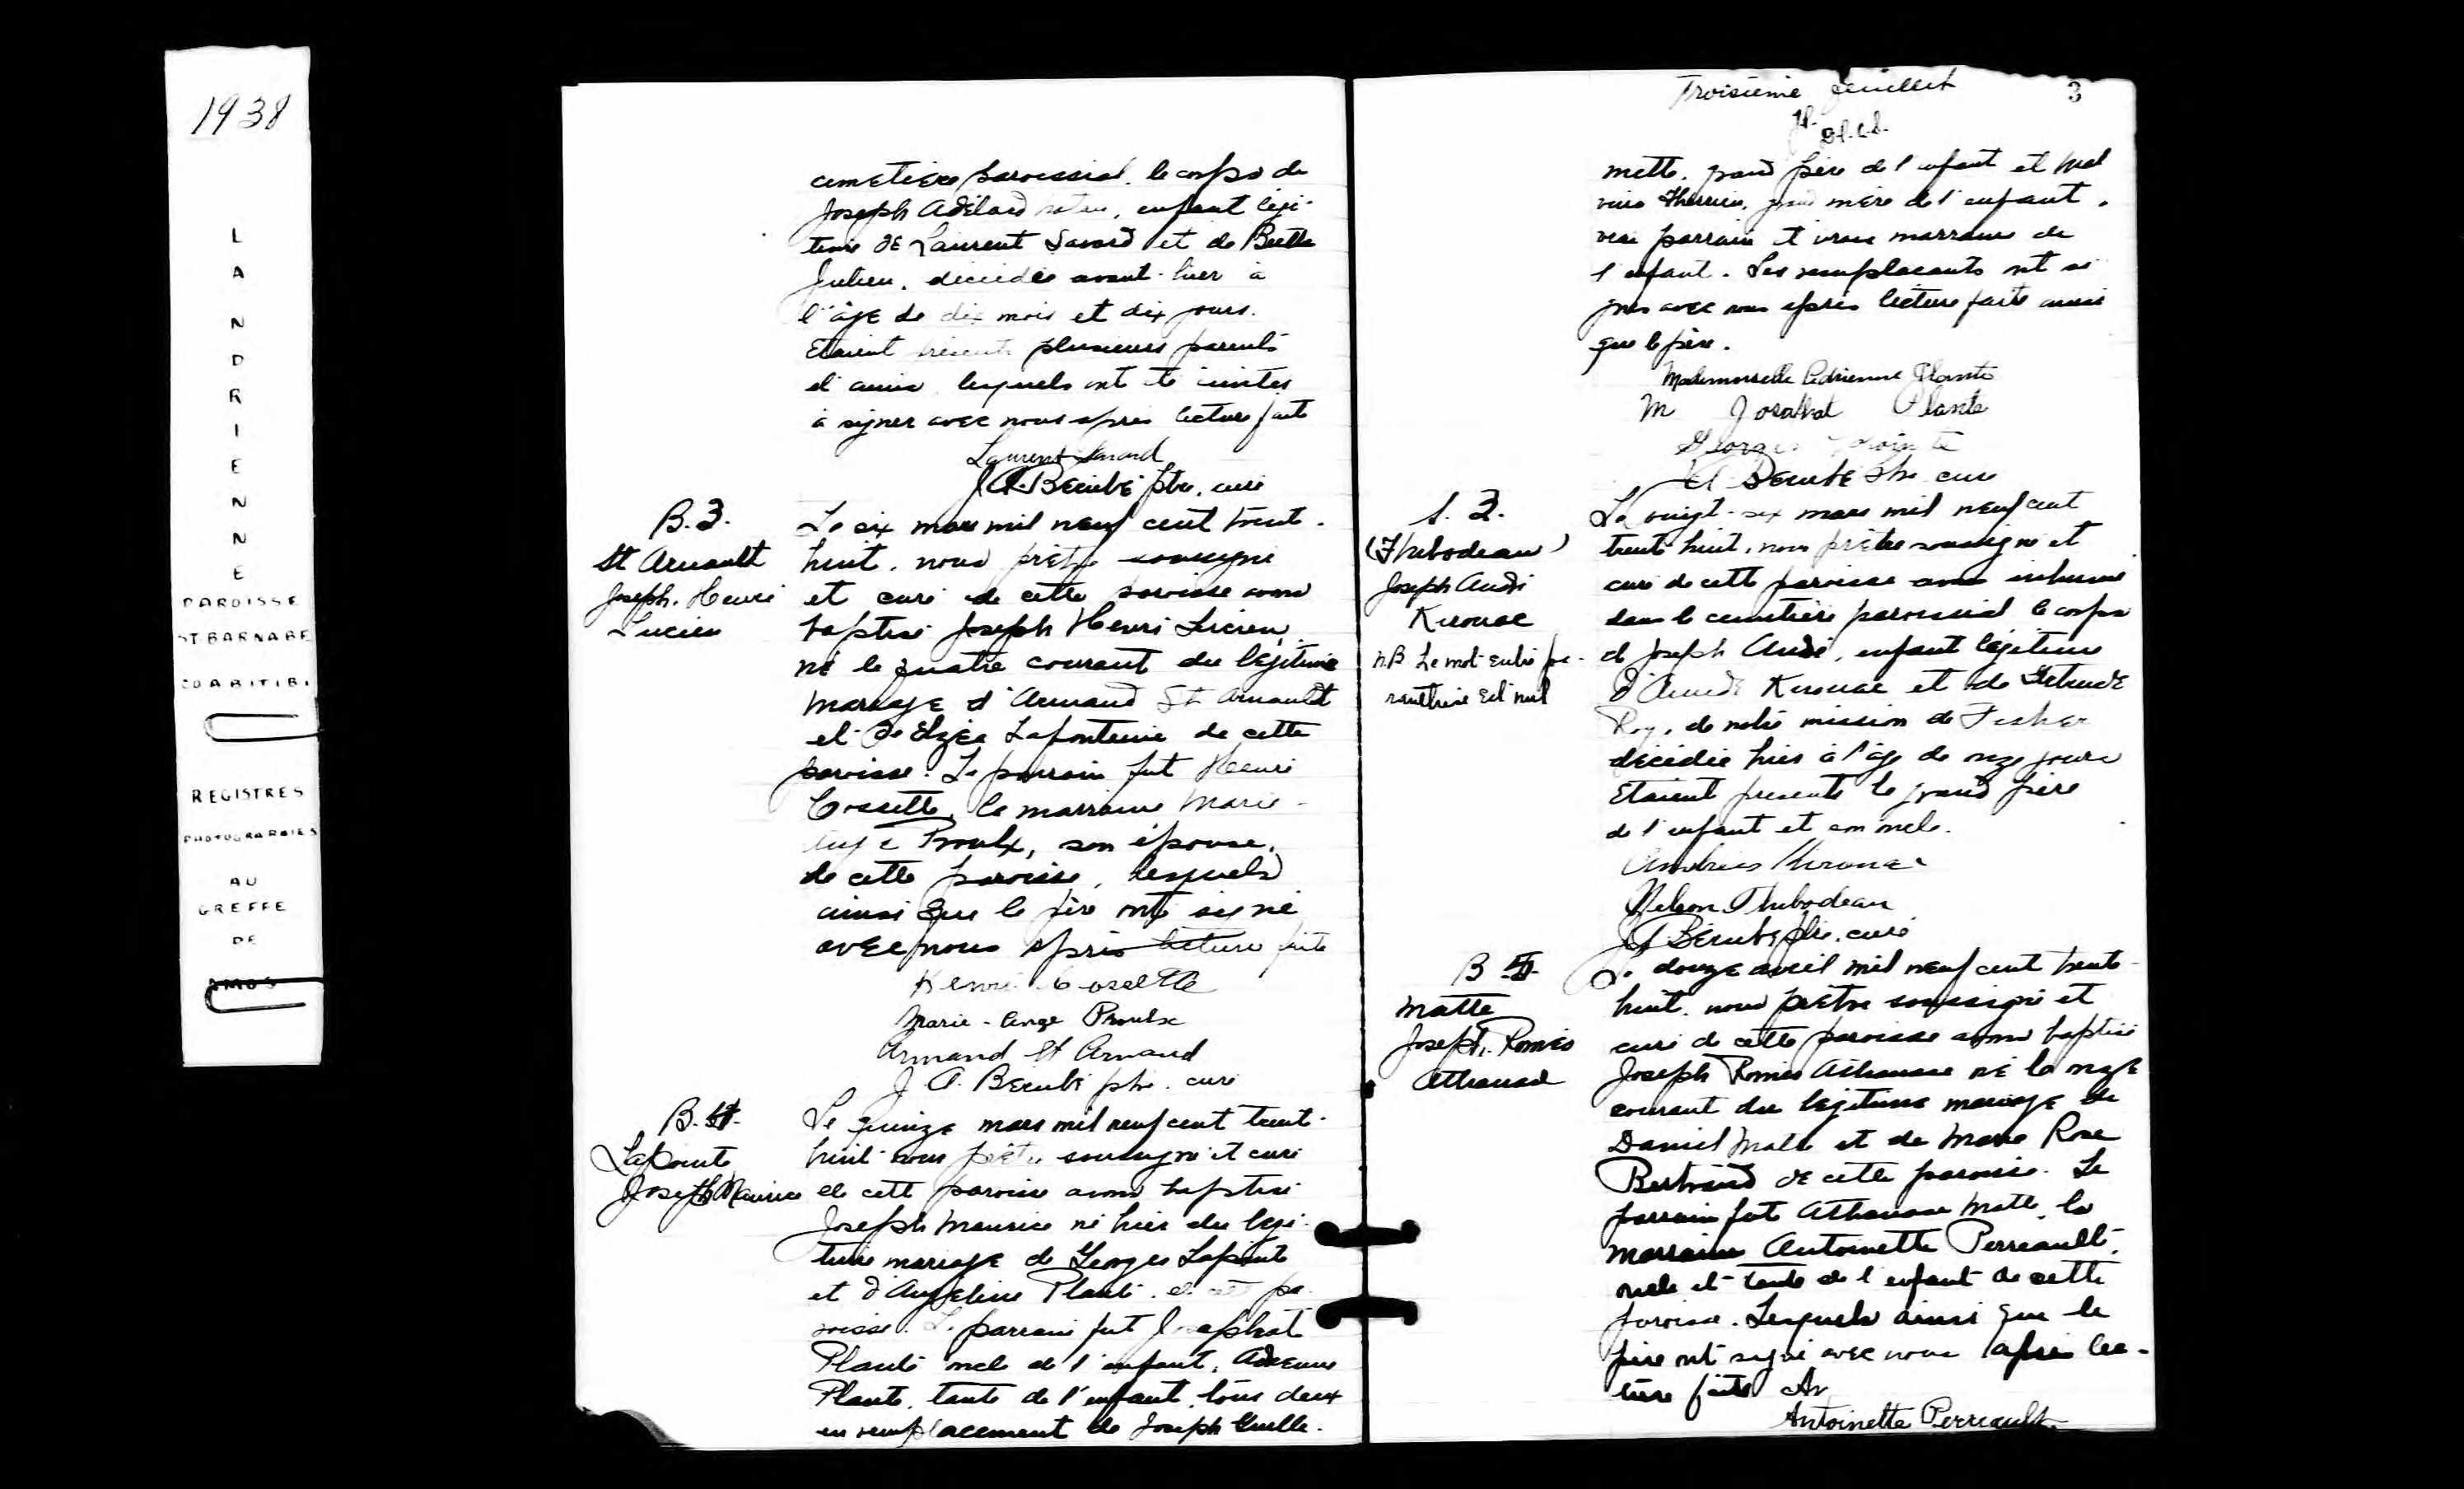 1938
LANDRIENNE
PAROISSE
ST-BARNABE
CO ABITIBI
REGISTRES
PHOTOGRAPHIES
AU
GREFFE
DE
AMOS
cimetière paroissial, le corps de
Joseph Adélard enfant légi-
time de Laurent Savard et de Berthe
Julien, décédée avant-hier à
l'âge de dix mois et dix jours.
Etaient présents plusieurs parents
et amis lesquels ont été invités
à signer avec nous après lecture faite
Laurent Savard
J.A. Bérubé ptre, curé
B.3.
St Arnault
Joseph. Henri
Lucien
Le six mars mil neuf cent trente-
huit, nous prêtre soussigné
et curé de cette paroisse avons
baptisé Joseph Henri Lucien,
né le quatre courant du légitime
mariage d'Armand St Arnault
et de Elzéa Lafontaine de cette
paroisse. Le parrain fut Henri
Cossette, la marraine Marie-
Ange Proulx, son épouse,
de cette paroisse, lesquels
ainsi que le père ont signé
avec nous après lecture faite
Henri Cossette
Marie-Ange Proulx
Armand St Arnaud
J. A. Bérubé ptre. curé
B.4.
Lapointe
Joseph Maurice
Le quinze mars mil neuf cent trent-
huit nous prêtre soussigné et curé
de cette paroisse avons baptisé
Joseph Maurice né hier du légi-
time mariage de Georges Lapointe
et d'Angéline Plante, de cette pa-
roisse. Le parrain fut Josaphat
Plante oncle de l'enfant, Adrienne
Plante, tante de l'enfant, tous deux
en remplacement de Joseph
Troisième feuillet
3
mette, grand père de l'enfant et Mal
vina Therrien, grand mère de l'enfant,
vrai parrain et vraie marraine de
l'enfant. Les remplacants ont si
gnés avec nous après lecture faite ainsi
que le père.
Mademoiselle Adrienne Plante
M Josaphat Plante
Georges Lapointe
J A Bérubé ptre curé
S. 2.
(Thibodeau)
Joseph André
Kirouac
N.B Le mot entre pa-
renthèse est nul
Le vingt-six mars mil neuf cent
trente huit, nous prêtre soussigné et
curé de cette paroisse avons inhumé
dans le cimetière paroissial le corps
de Joseph André, enfant légitime
d'Amédé Kirouac et de Gertrude
Roy, de notre mission de Fisher
décédée hier à l'âge de onze jours
Etaient présents le grand père
de l'enfant et son oncle.
Kirouac
Nelson Thibodeau
J A Bérubé ptre. curé
B 5
Matte
Joseph. Roméo
Athanase
Le douze avril mil neuf cent trente-
huit, nous prêtre soussigné et
curé de cette paroisse avons baptisé
Joseph Roméo Athanase né le onze
courant du légitime mariage de
Daniel Matte et de Marie Rose
Bertrand de cette paroisse. Le
parrain fut Athanase Matte, la
marraine Antoinette Perreault,
oncle et tante de l'enfant de cette
paroisse. Lesquels ainsi que le
père ont signé avec nous après lec-
ture faite
Antoinette Perreault